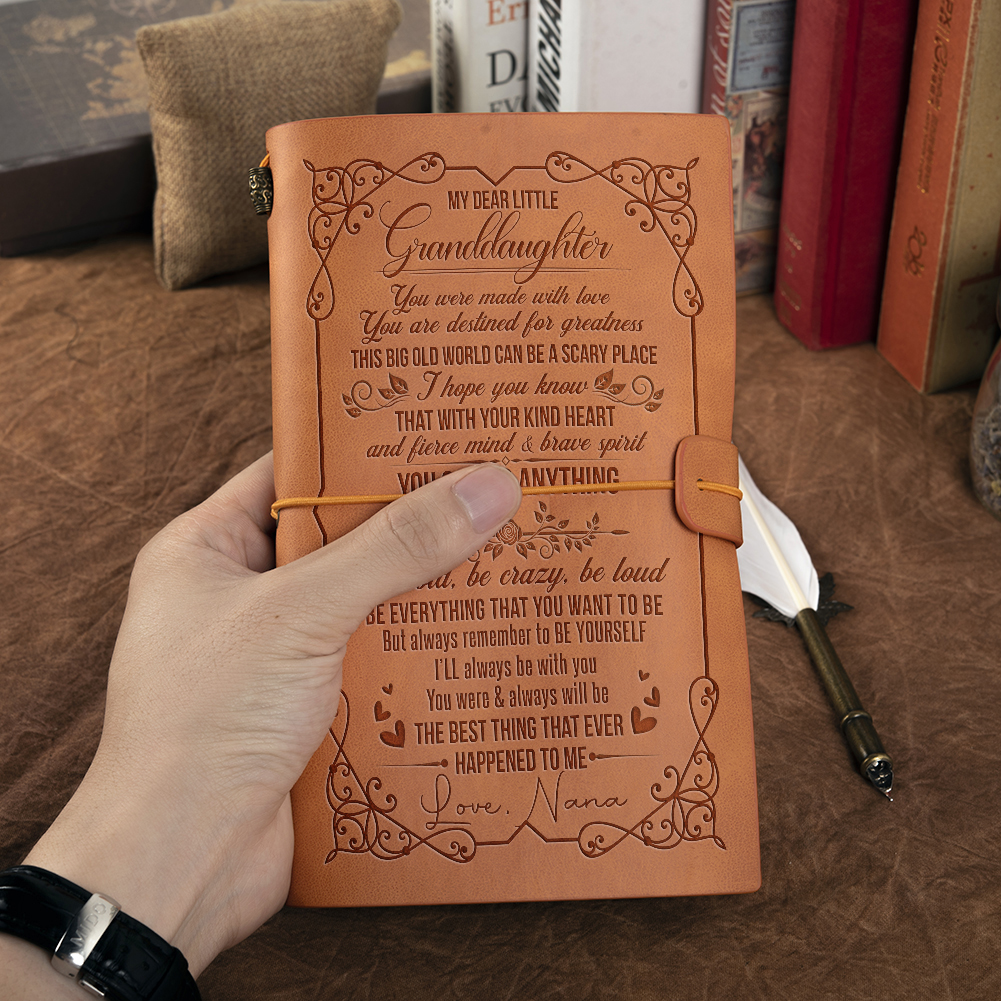 MY DEAR LITTLE
Granddaughter
You were made with love
You are destined for greatness
THIS BIG OLD WORLD CAN BE A SCARY PLACE
I hope you know
THAT WITH YOUR KIND HEART
and fierce mind & brave spirit
YOU ANYTHING
be crazy, be loud
BE EVERYTHING THAT YOU WANT TO BE
But always remember to BE YOURSELF
I'LL always be with you
You were & always will be
THE BEST THING THAT EVER
HAPPENED TO ME
Love, Nana
MICHAE
MIDO